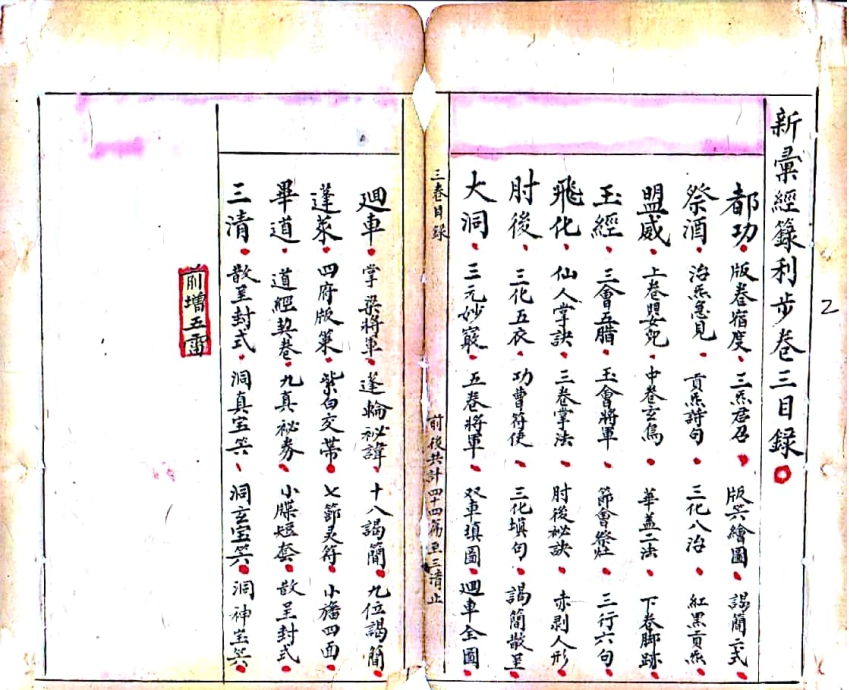 新彙經籙利步卷三目錄
都功 版卷宿度 三炁君召 版笶繪圖 謁簡二式
祭酒 治炁急見 貢炁詩句 三化八治 紅黑貢炁
盟威 上卷嬰兒 中卷玄鳥 華蓋二法 下卷脚跡
玉經 三會五腊 玉會將軍 節會祭 三行六句
飛化 仙人掌訣 三卷掌法 肘後祕訣 赤剥人形
肘後 三化五衣 功曹符使 三化填句 謁簡散呈
大洞 三元妙 五卷將軍 双車填圖 迴車全圖
三卷目錄 前後共計四十四篇至三清止
迴車 掌梁將軍 蓬輪祕諱 十八謁簡 九位謁簡
蓬萊 四府版策 紫白交帶 七節灵符 小旛四面
畢道 道經契卷 九真祕券 小牒短套 散呈封式
三清 散呈封式 洞真宝笶 洞玄宝笶 洞神宝笶
前增五雷
2